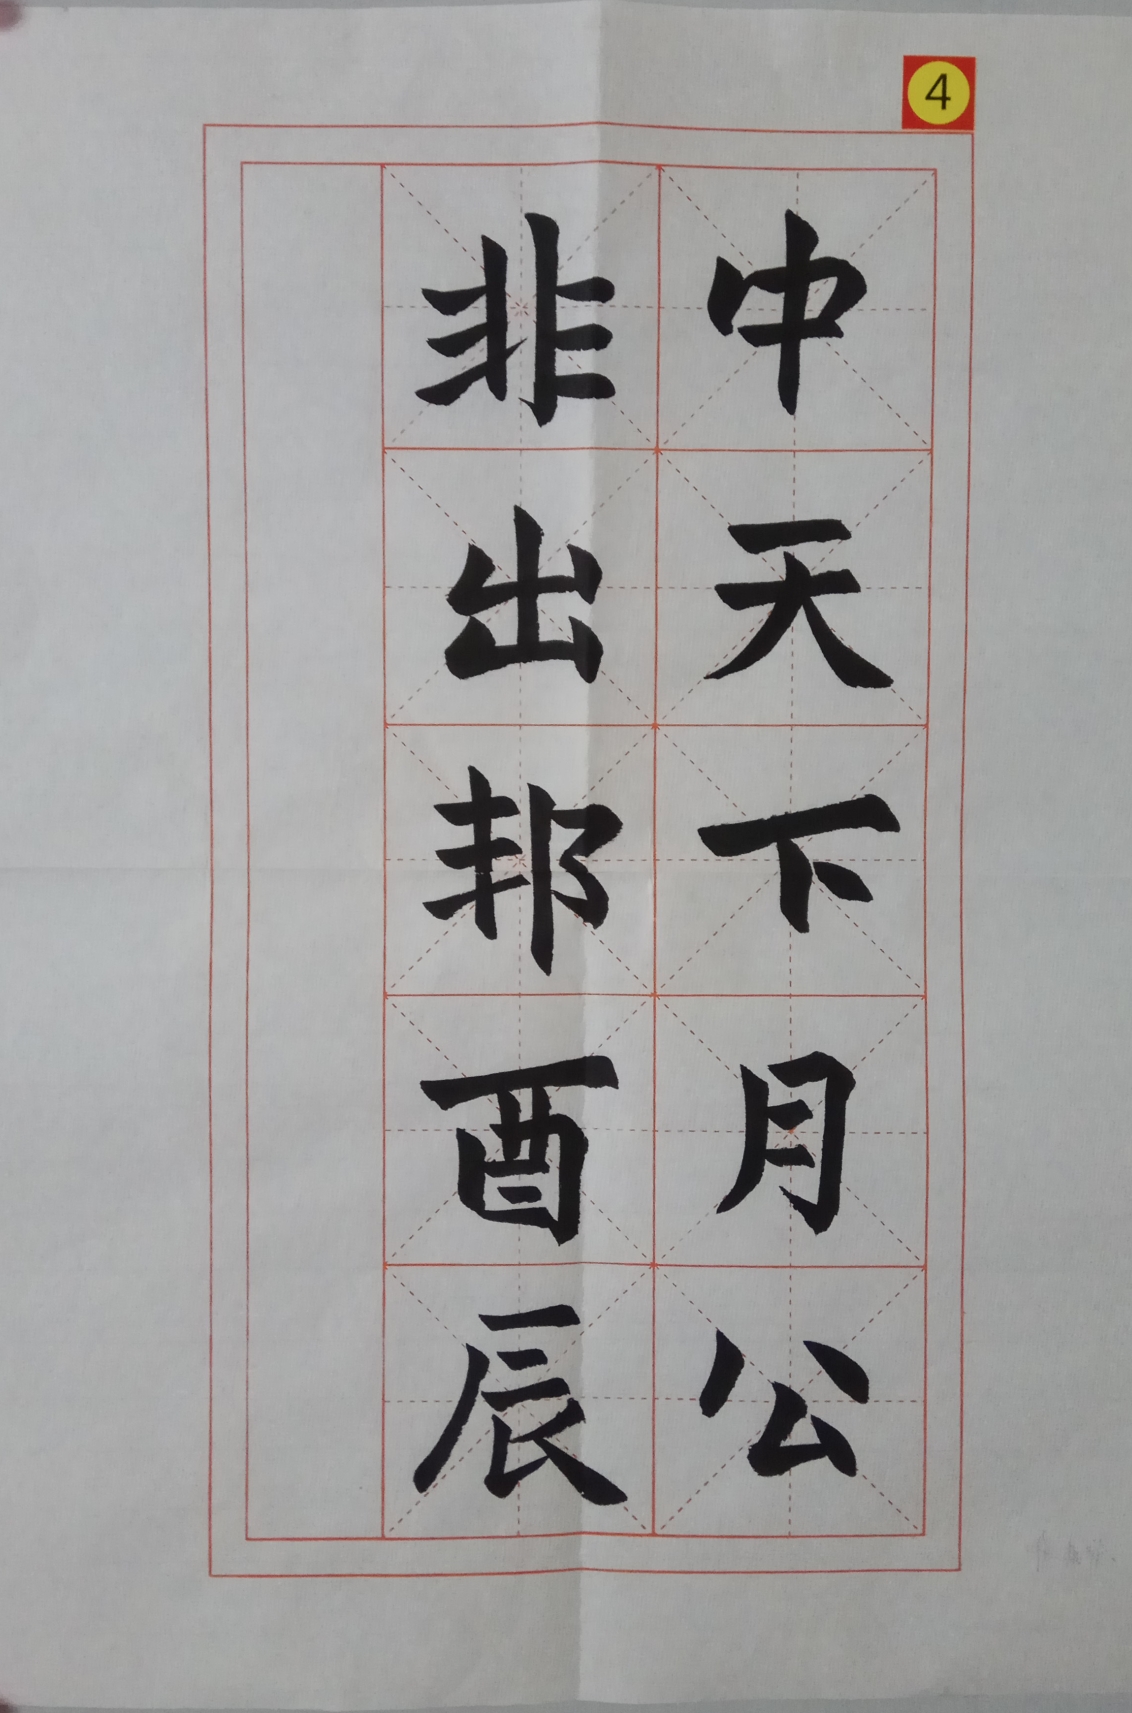 4
中天下月公
非出邦酉辰